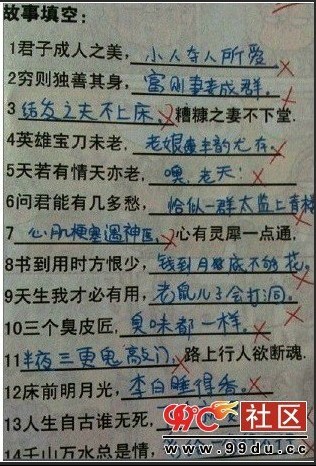 故事填空:
1君子成人之美，小人夺人所爱.
2穷则独善其身，富则妻妾成群.
3结发之夫不上床，糟糠之妻不下堂.
4英雄宝刀未老，老娘丰韵尤存.
5天若有情天亦老，噢,老天!
6问君能有几多愁，恰似一群太监上青楼
7心肌梗塞遇神医，心有灵犀一点通，
8书到用时方恨少，钱到月底不够花.
9天生我才必有用，老鼠儿子会打洞.
10三个臭皮匠，臭味都一样.
11半夜三更鬼敲门，路上行人欲断魂.
12床前明月光，李白睡得香.
13人生自古谁无死，
14千山万水总是情，
99℃社区
www.99du.cc